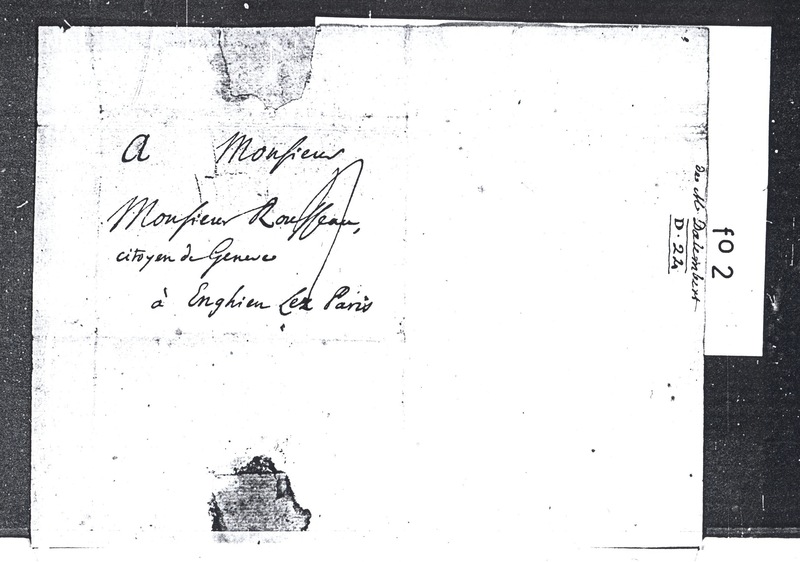 A Monsieur
Monsieur Rousseau,
citoyen de Geneve
à Enghien Lez Paris
de Mr Dalembert
D. 24
fo 2